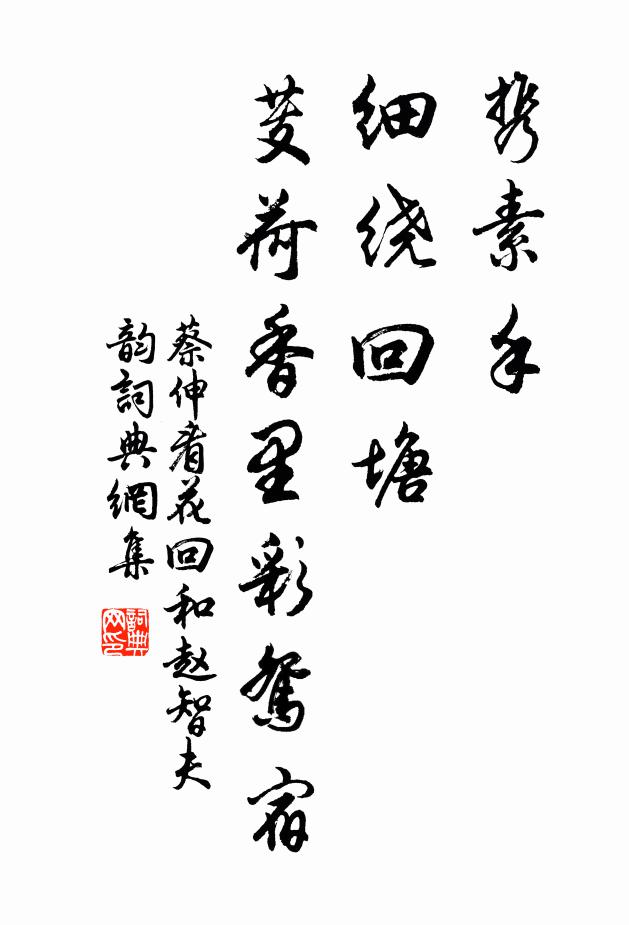 携素手
细绕回塘
芰荷香里彩鸳宿
蔡伸看花回和赵智夫
韵詞典網集
詞典
网印